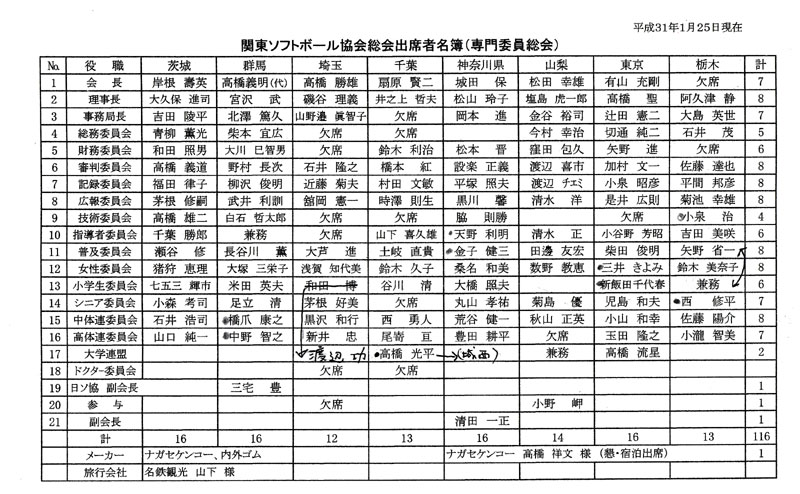 平成31年1月25日現在
関東ソフトボール協会総会出席者名簿(専門委員総会)
No. 役職 茨城 群馬 埼玉 千葉 神奈川県 山梨 東京 栃木 計
1 会長 岸根 壽英 高橋義明(代) 高橋 勝雄 扇原 賢二 城田 保 松田 幸雄 有山 充剛 欠席 7
2 理事長 大久保 進司 宮沢 武 磯谷 理義 井之上 哲夫 松山 玲子 塩島 虎一郎 高橋 聖 阿久津 静 8
3 事務局長 吉田 陵平 北澤 篤久 山野邉 眞智子 欠席 岡本 進 金谷 裕司 辻田 憲二 大島 英世 7
4 総務委員会 青柳 薫光 柴本 宜広 欠席 欠席 今村 幸治 切通 純二 石井 茂 5
5 財務委員会 和田 照男 大川 巳智男 欠席 鈴木 利治 松本 晋 窪田 包久 矢野 進 欠席 6
6 審判委員会 高橋 義道 野村 長次 石井 隆之 橋本 紅 設楽 正義 渡辺 喜市 加村 文一 佐藤 達也 8
7 記録委員会 福田 律子 柳沢 俊明 近藤 菊夫 村田 文敏 平塚 照夫 渡辺 チエミ 小泉 昭彦 平間 邦彦 8
8 広報委員会 茅根 修嗣 武井 利訓 舘岡 憲一 時澤 則生 黒川 馨 清水 洋 是井 広則 菊池 幸雄 8
9 技術委員会 高橋 雄二 白石 哲太郎 欠席 欠席 脇 則勝 欠席 小泉 治 4
10 指導者委員会 千葉 勝郎 兼務 欠席 山下 喜久雄 天野 利明 清水 正 小谷野 芳昭 吉田 美咲 6
11 普及委員会 瀬谷 修 長谷川 薫 大芦 進 土岐 直貴 金子 健三 田邉 友宏 柴田 俊明 矢野 省一 8
12 女性委員会 猪狩 恵理 大塚 三栄子 浅賀 知代美 鈴木 久子 桑名 和美 数野 教恵 三井 きよみ 鈴木 美奈子 8
13 小学生委員会 七五三 輝市 米田 英夫 和田 一博 谷川 清 大橋 照夫 新飯田千代春 兼務 6
14 シニア委員会 小森 考司 足立 清 茅根 好美 欠席 丸山 孝祐 菊島 優 児島 和夫 西 修平 7
15 中体連委員会 石井 浩司 橋爪 康之 黒沢 和行 西 勇人 荒谷 健一 秋山 正英 小山 和幸 佐藤 陽介 8
16 高体連委員会 山口 純一 中野 智之 新井 忠 尾嵜 亘 豊田 耕平 欠席 玉田 隆之 小瀧 智美 7
17 大学連盟 渡辺 功 高橋 光平 →(城西) 兼務 高橋 流星 2
18 ドクター委員会 欠席 欠席
19 日ソ協 副会長 三宅 豊 1
20 参与 欠席 小野 岬 1
21 副会長 清田 一正 1
計 16 16 12 13 16 14 16 13 116
メーカー ナガセケンコー、内外ゴム ナガセケンコー 高橋 祥文 様 (懇・宿泊出席) 1
旅行会社 名鉄観光 山下 様